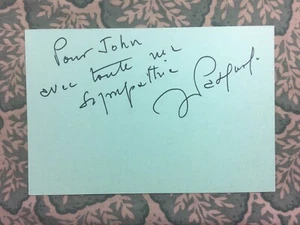 Pour John
avec toute ma
sympathie